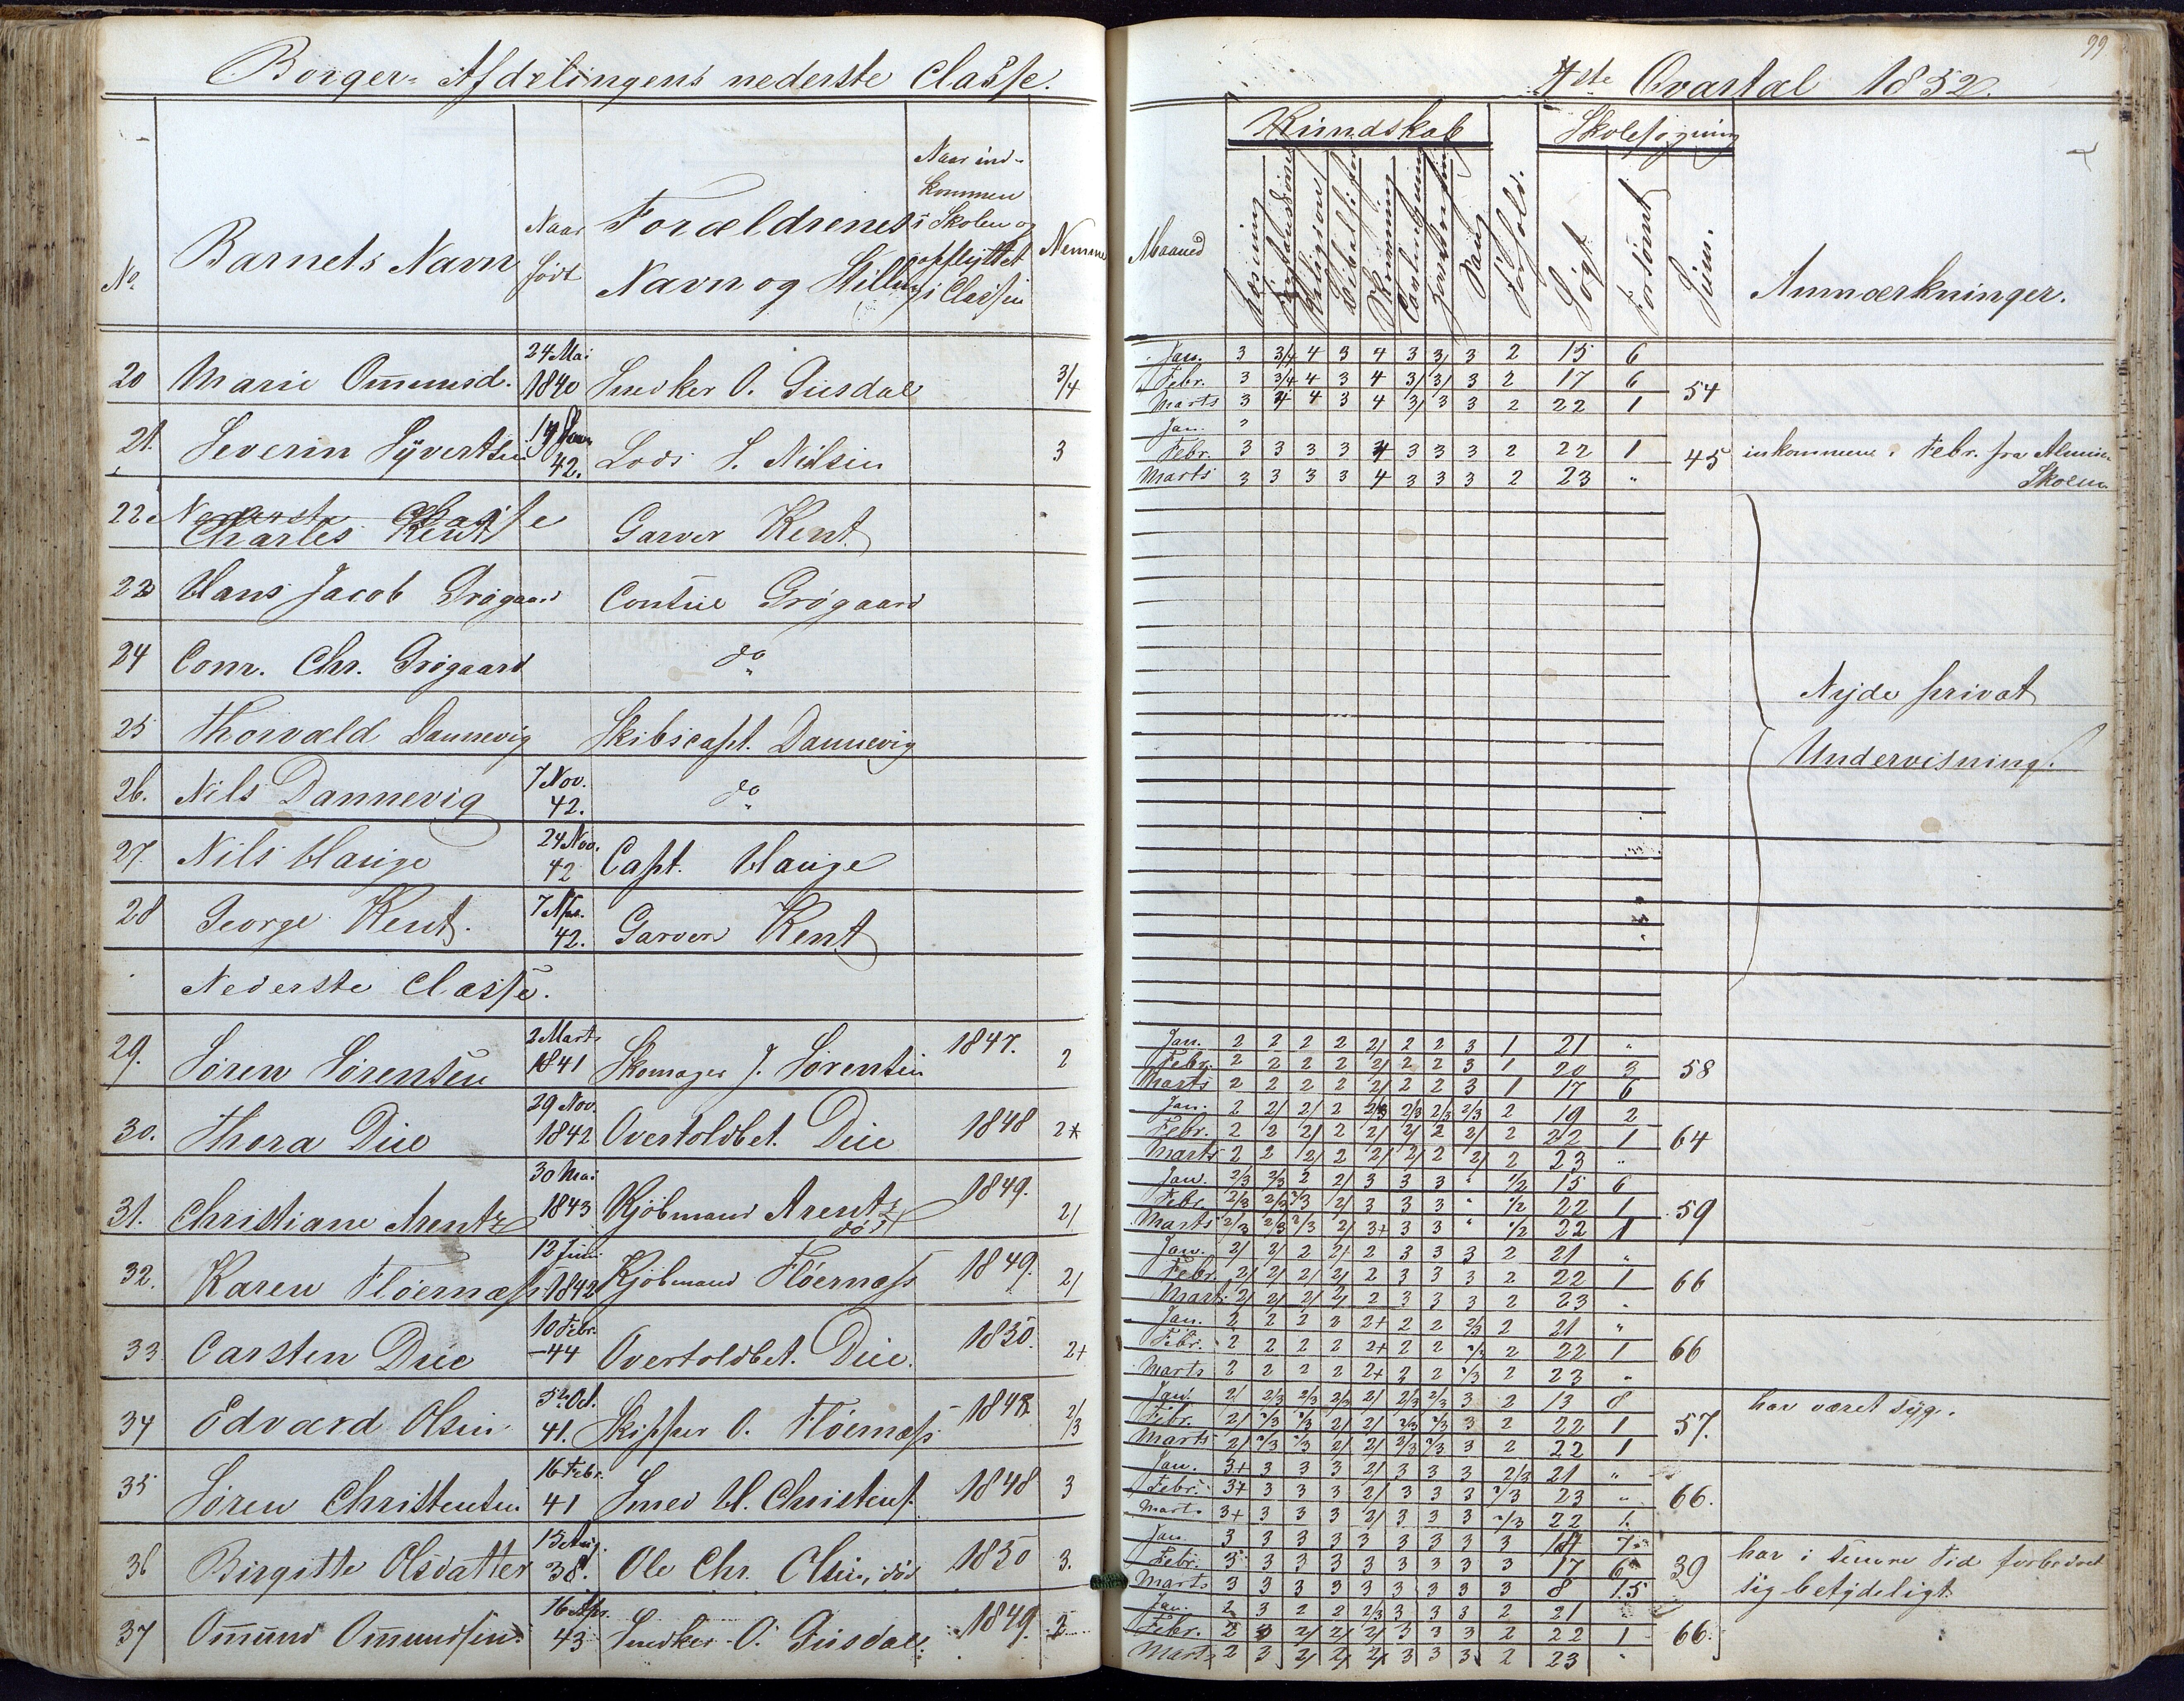 Borger-Afdelingens nederste Classe.
No. Barnets Navn Naar født Forældrenes Navn og Stilling Naar ind-kommen i Skolen og opflyttet i Classen Nemme
20 Marie Om̅unsd. 24 Mai 1840 Snedker O. Gusdal 3/4
21. Severin Syvertsen 42. Lods S. Nilsen 3
22 Nederste Classe
Charles Kent Garver Kent
23 Hans Jacob Grøgaard Grøgaard
24 Conr. Chr. Grøgaard do
25 Thorvald Dannevig Skibscapt. Dannevig
26. Nils Dannevig 7 Nov. 42. do
27. Nils Hauge 24 Nov. 42 Capt. Hauge
28 George Kent. 42. Garver Kent
Nederste Classe.
29. Søren Sørensen 2 Marts 1841 Skomager J. Sørensen 1847. 2
30. Thora Due 29 Nov. 1842 Overtoldbet. Due 1848 2+
31. Christiane Arentz 30 Mai 1843 Kjøbmand Arentz død 1849. 2/
32. Karen Fløernæss 12 Juni 1842 Kjøbmand Fløernæss 1849. 2/
33 Carsten Due 10 Febr. -44 Overtoldbet. Due. 1850. 2+
34 Edvard Olsen 5te Oct. 41. Skipper O. Fløernæss 1848. 2/3
35 Søren Christensen 16 Febr. 41 Smed H. Christens. 1848 3
36 Birgitte Olsdatter 15 Aug. 38. Ole Chr. Olsen, død 1850 3.
37 Om̅und Om̅undsen 16 Apr. 43 Snedker O. Gusdal. 1849. 2
99
1ste Qvartal 1852.
Kundskab Skolesøgning
Maaned Læsning Religion Skrivning Sang Forhold. Søgt Forsømt Sum. Anmærkninger.
Jan. 3 3/4 4 3 4 3 3/ 3 2 15 6
Febr. 3 3/4 4 3 4 3/ 3/ 3 2 17 6 54
Marts 3 4 4 3 4 3/ 3 3 2 22 1
Jan. "
Febr. 3 3 3 3 4 3 3 3 2 22 1 45 inkommen i Febr. fra Almue
Marts 3 3 3 3 4 3 3 3 2 23 " Skolen
Nyde privat
Undervisning.
Jan. 2 2 2 2 2/ 2 2 3 1 21 "
Febr. 2 2 2 2 2/ 2 2 3 1 20 3 58
Marts 2 2 2 2 2/ 2 2 3 1 17 6
Jan. 2 2/ 2/ 2 2/3 2/3 2/3 2/3 2 19 2
Febr. 2 2 2/ 2 2/ 2/ 2 2/ 2 22 1 64
Marts 2 2 2/ 2 2/ 2/ 2 2/ 2 23 "
Jan. 2/3 2/3 2 2/ 3 3 3 " 1/2 15 6
Febr. 2/3 2/3 2/3 2/ 3 3 3 " 1/2 22 1 59
Marts 2/3 2/3 2/3 2/ 3+ 3 3 " 1/2 22 1
Jan. 2/ 2/ 2 2+ 2 3 3 3 2 21 "
Febr. 2/ 2/ 2/ 2/ 2 3 3 3 2 22 1 66
Marts 2/ 2/ 2/ 2/ 2 3 3 3 2 23 "
Jan. 2 2 2 2 2+ 2 2 2/3 2 21 "
Febr. 2 2 2 2 2+ 2 2 2/3 2 22 1 66
Marts 2 2 2 2 2+ 2 2 2/3 2 23 "
Jan. 2/ 2/3 2/3 2/3 2/ 2/3 2/3 3 2 13 8 har været syg.
Febr. 2/ 2/3 2/3 2/ 2/ 2/3 2/3 3 2 22 1 57.
Marts 2/ 2/3 2/3 2/ 2/ 2/3 2/3 3 2 22 1
Jan. 3+ 3 3 3 2/ 3 3 3 2/3 21 "
Febr. 3+ 3 3 3 2/ 3 3 3 2/3 23 " 66.
Marts 3+ 3 3 3 2/ 3 3 3 2/3 22 1.
Jan. 3 3 3 3 3 3 3 3 3 14 7
Febr. 3 3 3 3 3 3 3 3 3 17 6 39 har i senere Tid forbedret
Marts 3 3 3 3 3 3 3 3 3 8 15 sig betydeligt.
Jan. 2 3 2 2 2/3 3 3 3 2 21 "
Febr. 2 3 2/ 2/ 2/ 3 3 3 2 22 1 66.
Marts 2 3 2/ 2/ 2/ 3 3 3 2 23 "